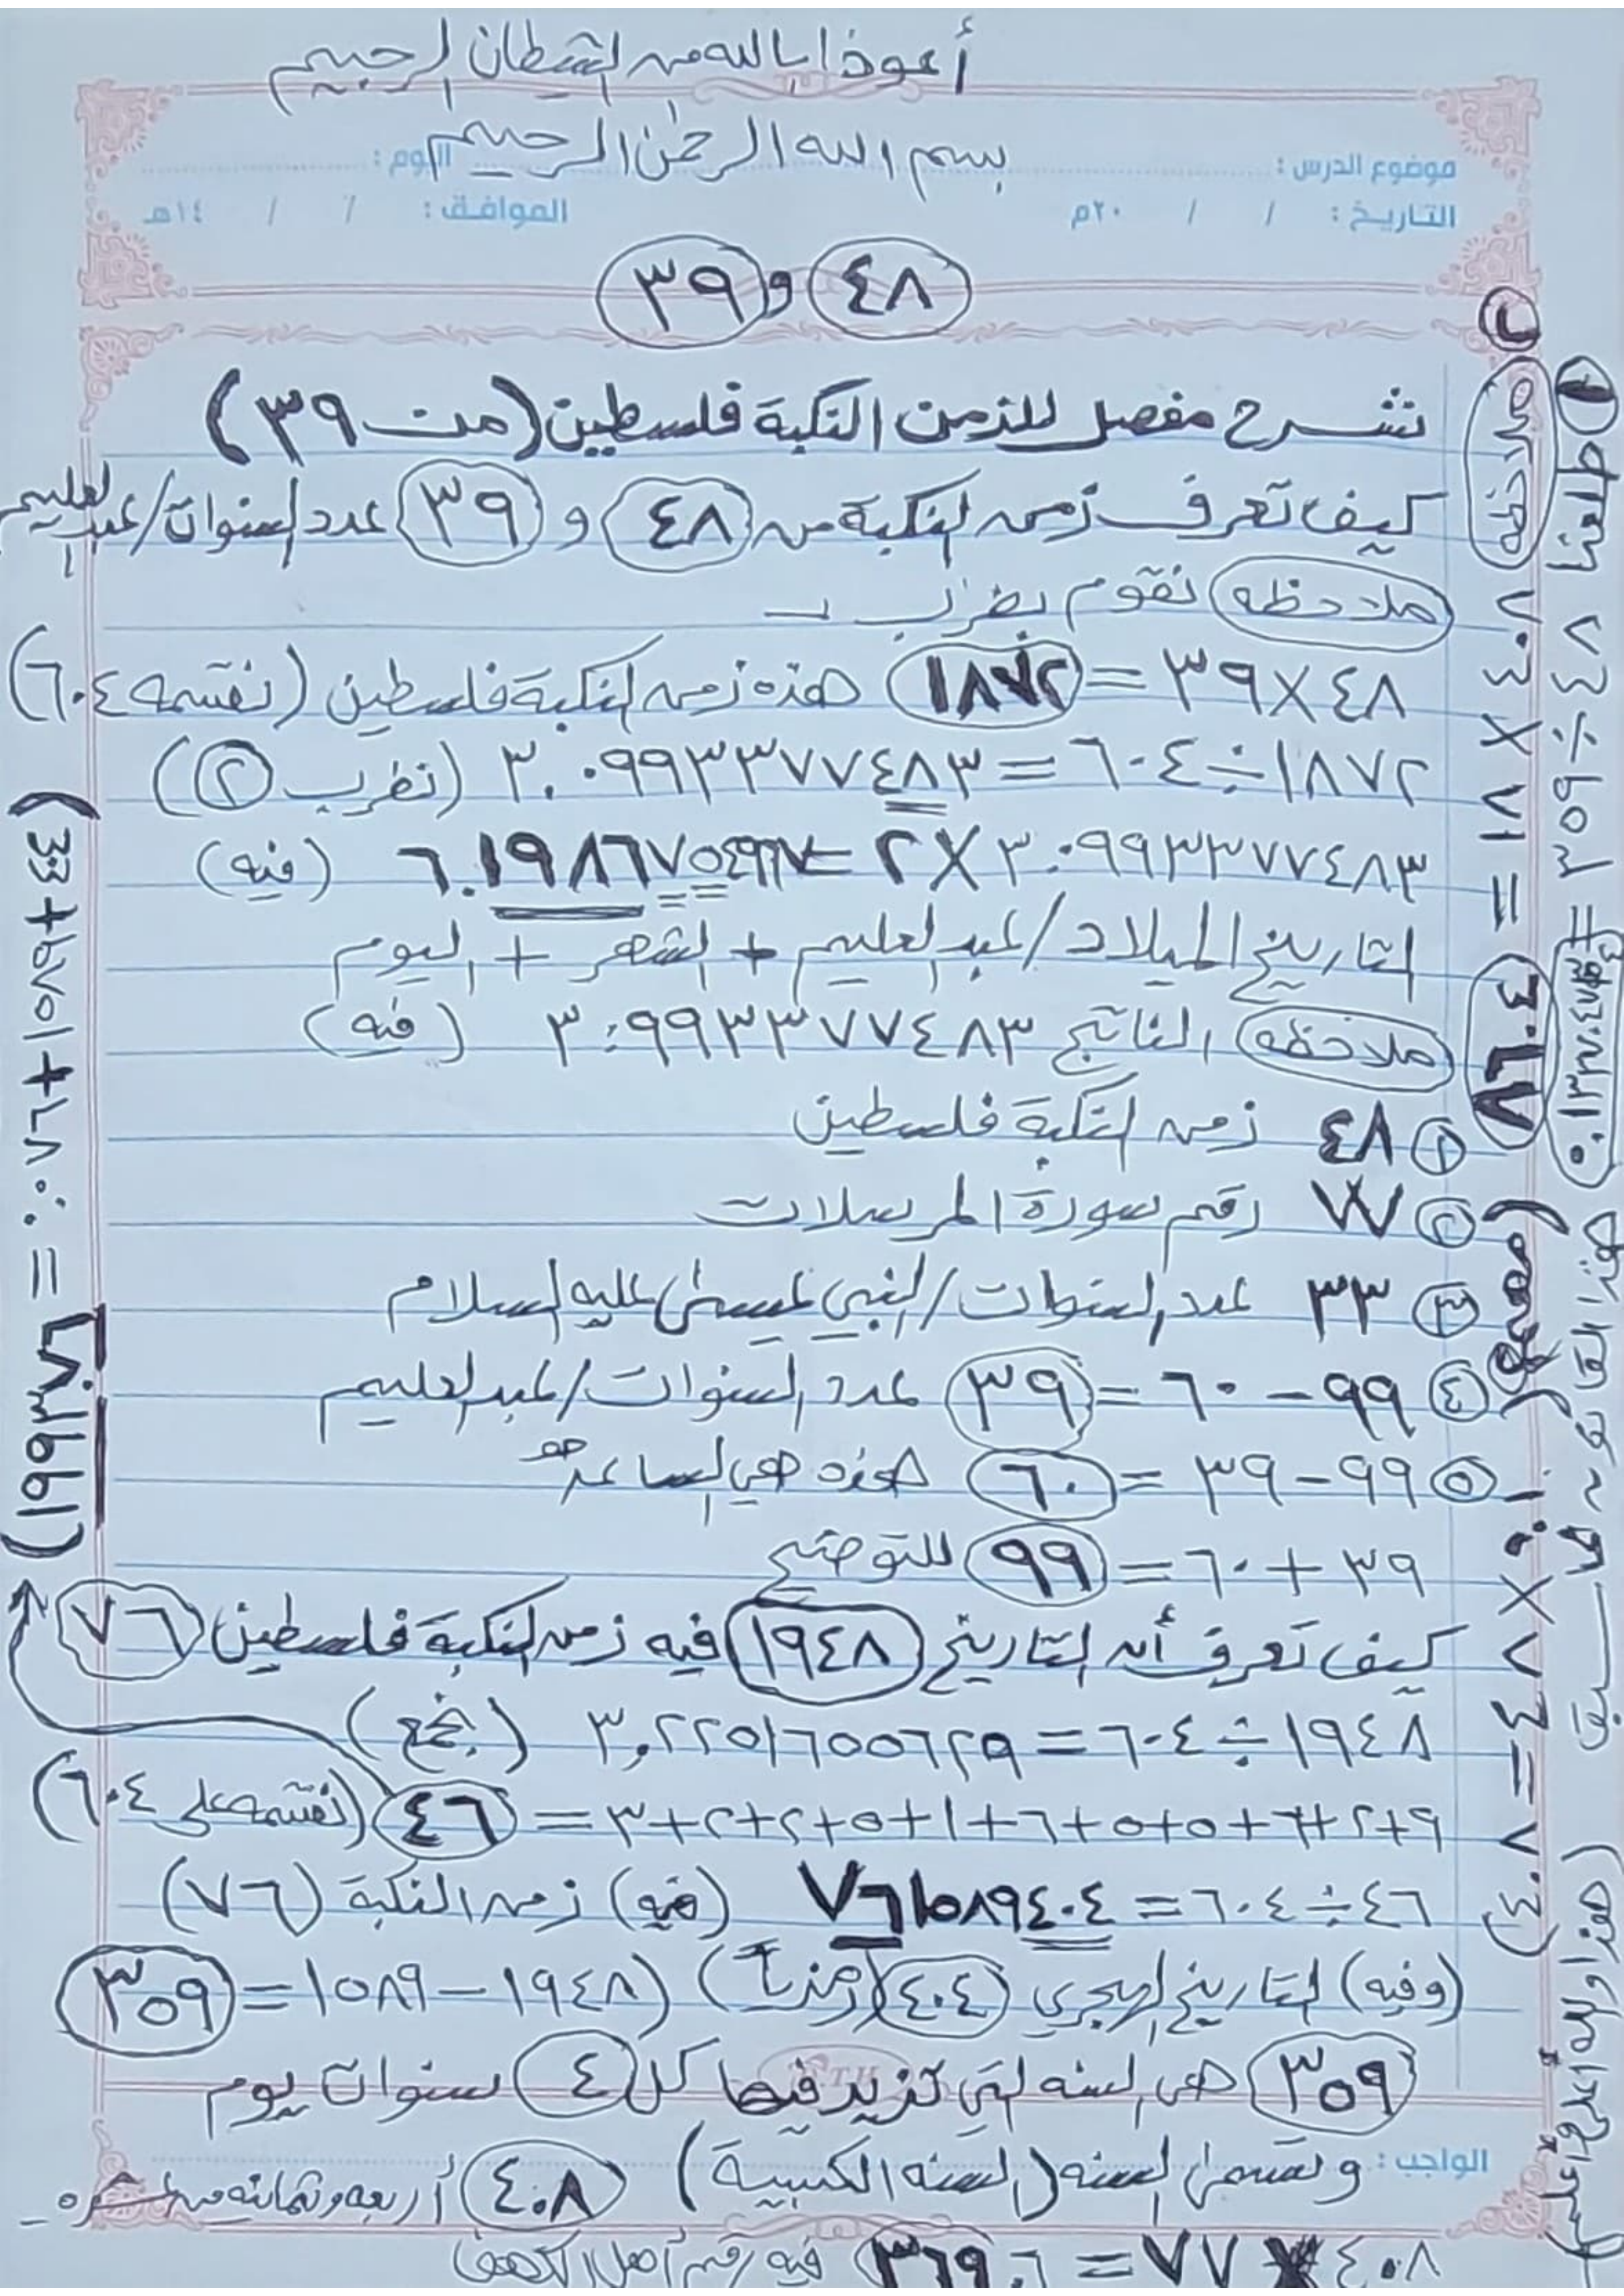 أعوذ بالله من الشيطان الرجيم
بسم الله الرحمن الرحيم
موضوع الدرس : اليوم :
التاريخ : / / ٢٠م الموافق : / / ١٤هـ
٤٨ و ٣٩
نشرح مفصل للزمن النكبة فلسطين (من ٣٩)
كيف تعرف زمن النكبة من ٤٨ و ٣٩ عدد السنوات/عبدالعليم
ملاحظه نقوم بضرب
٤٨ × ٣٩ = ١٨٧٢ هذه زمن النكبة فلسطين (نقسمه ٦٠٤)
١٨٧٢ ÷ ٦٠٤ = ٣.٠٩٩٣٣٧٧٤٨٣ (نضرب ٢)
٣.٠٩٩٣٣٧٧٤٨٣ × ٢ = ٦.١٩٨٦٧٥٤٩٦٧ (فيه)
التاريخ الميلاد/عبدالعليم + الشهر + اليوم
ملاحظه الناتج ٣.٠٩٩٣٣٧٧٤٨٣ (فيه)
١ ٤٨ زمن النكبة فلسطين
٢ ٧٧ رقم سورة المرسلات
٣ ٣٣ عدد السنوات/النبي عيسى عليه السلام
٤ ٩٩ - ٦٠ = ٣٩ عدد السنوات/عبدالعليم
٥ ٩٩ - ٣٩ = ٦٠ هذه هي الساعة
٣٩ + ٦٠ = ٩٩ للتوضيح
كيف تعرف أن التاريخ ١٩٤٨ فيه زمن النكبة فلسطين ٧٦
١٩٤٨ ÷ ٦٠٤ = ٣,٢٢٥١٦٥٥٦٢٩ (نجمع)
٩+٢+٦+٥+٥+٦+١+٥+٢+٢+٣ = ٤٦ (نقسمه على ٦٠٤)
٤٦ ÷ ٦٠٤ = ٧٦١٥٨٩٤٠٤ (فيه) زمن النكبة (٧٦)
(وفيه) التاريخ الهجري ٤٠٤ (١٩٤٨ - ١٥٨٩ = ٣٥٩
٣٥٩ هي السنه التي تزيد فيها كل ٤ سنوات يوم
الواجب : وتسمى السنه (السنه الكبيسة) ٤٠٨
٤٠٨ × ٧٧ = فيه رقم أهل الكهف
ملاحظه ٢٠٤ × ٧١ =
٢ × ٤ = ٨
١ طلعنا ٤٨ ÷ ٣٥٩ =
هذا القانون
(هذا والله أعلى وأعلم)
= ١٩٩٣٨٦)